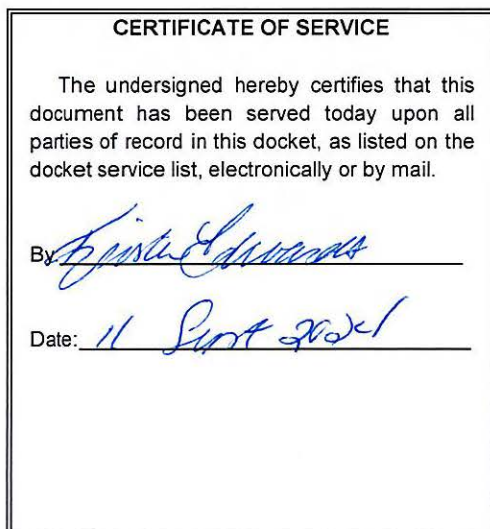 CERTIFICATE OF SERVICE
The undersigned hereby certifies that this
document has been served today upon all
parties of record in this docket, as listed on the
docket service list, electronically or by mail.
By Edwards
Date: 11 Sept 2024